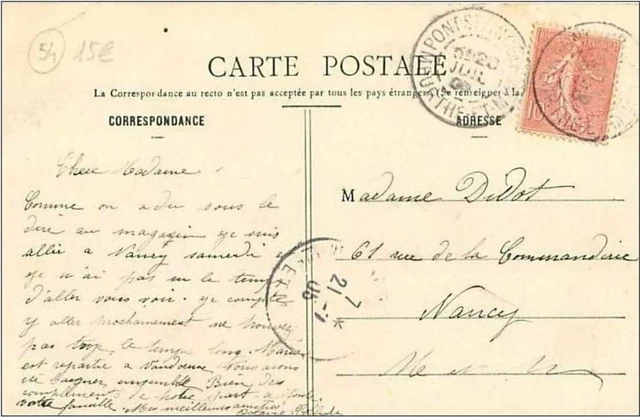 54 15€
CARTE POSTALE
La Correspondance au recto n'est pas acceptée par tous les pays étrangers (Se renseigner à la
CORRESPONDANCE
ADRESSE
Chere Madame
Comme on a du vous le
dire au magasin je suis
allée a Nancy samedi
je n'ai pas eu le temps
d'aller vous voir. je compte
y aller prochainement ne trouvez
pas trop le temps long. Marie
est repartie a Vandœuvre
ensemble Bien des
compliments de notre part a toute
votre famille. Mes meilleures amitiés
Madame Didot
61 rue de la Commanderie
Nancy
M et M
PONT-ST-VINCENT
MEURTHE-ET-M
20
JUIL
10
21 - 7
05